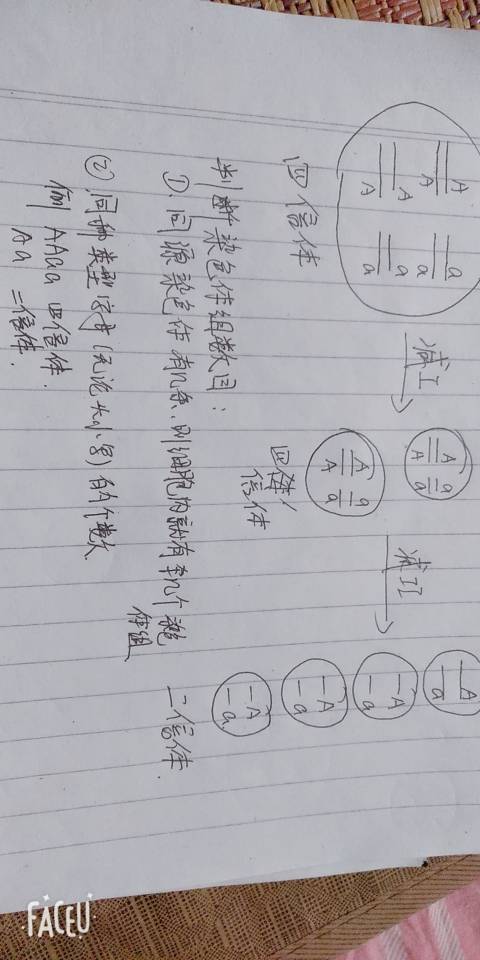 A A a a
A A a a
减I
A a
A a
A a
A a
减II
A
a
A
a
A
a
A
a
四倍体
四倍体
二倍体
判断染色体组数目：
①.同源染色体有几条，则细胞内就有几个染色体组
②.同种类型字母(无论大小写)的个数
例 AAaa 四倍体.
Aa 二倍体.
FACEU